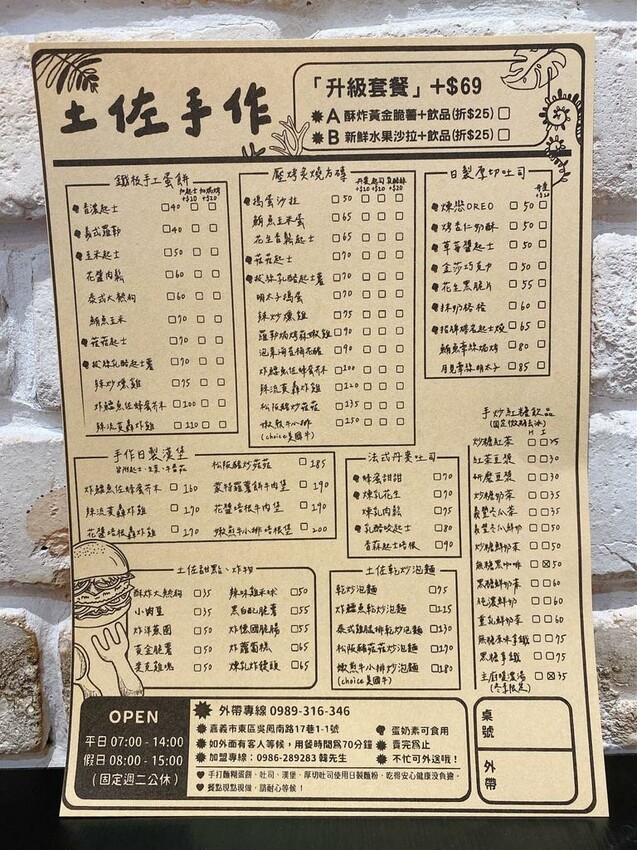 土佐手作
「升級套餐」+$69
A 酥炸黃金脆薯+飲品(折$25)
B 新鮮水果沙拉+飲品(折$25)
鐵板手工蛋餅
加起士+$10 加焗烤+$20
香濃起士 40
義式羅勒 40
玉米起士 50
花醬肉鬆 60
泰式大熱狗 60
鮪魚玉米 70
菇菇起士 70
拔絲乳酪起士薯 70
辣炒燻雞 75
炸鱈魚佐蜂蜜芥末 100
辣流黃轟炸雞 110
壓烤炙燒方磚
搗蛋沙拉 50
鮪魚玉米蛋 65
花生香鬆起士 65
菇菇起士 70
拔絲乳酪起士薯 70
明太子搗蛋 70
辣炒燻雞 75
羅勒焗烤蒜嫩雞 90
泡菜海苔梅花豬 90
炸鱈魚佐蜂蜜芥末 100
辣流黃轟炸雞 120
松阪豬炒菇菇 135
嫩煎牛小排 150
(choice美國牛)
日製厚切吐司
煉戀OREO 50
烤杏仁奶酥 50
草莓醬起士 50
金莎巧克力 50
花生黑脆片 55
抹奶格格 60
招牌烤布起士燒 65
鮪魚牽絲焗烤 80
月見牽絲明太子 85
手作日製漢堡
炸鱈魚佐蜂蜜芥末 160
辣流黃轟炸雞 170
花醬培根轟炸雞 170
松阪豬炒菇菇 185
蒙特羅薯餅牛肉堡 190
花醬培根牛肉堡 190
嫩煎牛小排培根堡 200
法式丹麥吐司
蜂蜜甜甜 70
煉乳花生 70
煉乳肉鬆 75
乳酪咬起士 80
香蒜起士培根 90
手炒紅糖飲品
(固定微甜去冰)
H I
炒糖紅茶 25
紅茶豆漿 30
研磨豆漿 30
炒糖奶茶 35
義豐冬瓜茶 35
義豐冬瓜鮮奶 50
炒糖鮮奶茶 50
無糖黑咖啡 50
黑糖鮮奶茶 60
純濃鮮奶 60
重乳鮮奶茶 60
無糖原味拿鐵 75
黑糖拿鐵 75
主廚暖濃湯 35
(冬季限定)
土佐甜點、炸物
酥炸大熱狗 35
小肉豆 35
炸洋蔥圈 50
黃金脆薯 50
麥克雞塊 50
辣味雞米球 50
黑白配脆薯 55
炸德國脆腸 55
炸蘿蔔糕 65
煉乳炸饅頭 65
土佐乾炒泡麵
乾炒泡麵 75
炸鱈魚乾炒泡麵 125
泰式雞腿排乾炒泡麵 130
松阪豬菇菇炒泡麵 170
嫩煎牛小排炒泡麵 180
(choice美國牛)
OPEN
平日 07:00 - 14:00
假日 08:00 - 15:00
(固定週二公休)
外帶專線 0989-316-346
嘉義市東區吳鳳南路17巷1-1號
如外面有客人等候，用餐時間為70分鐘
加盟專線：0986-289283 韓先生
蛋奶素可食用
賣完為止
不忙可外送哦！
手打麵糊蛋餅、吐司、漢堡、厚切吐司使用日製麵粉，吃得安心健康沒負擔。
餐點現點現做，請耐心等候！
桌號
外帶